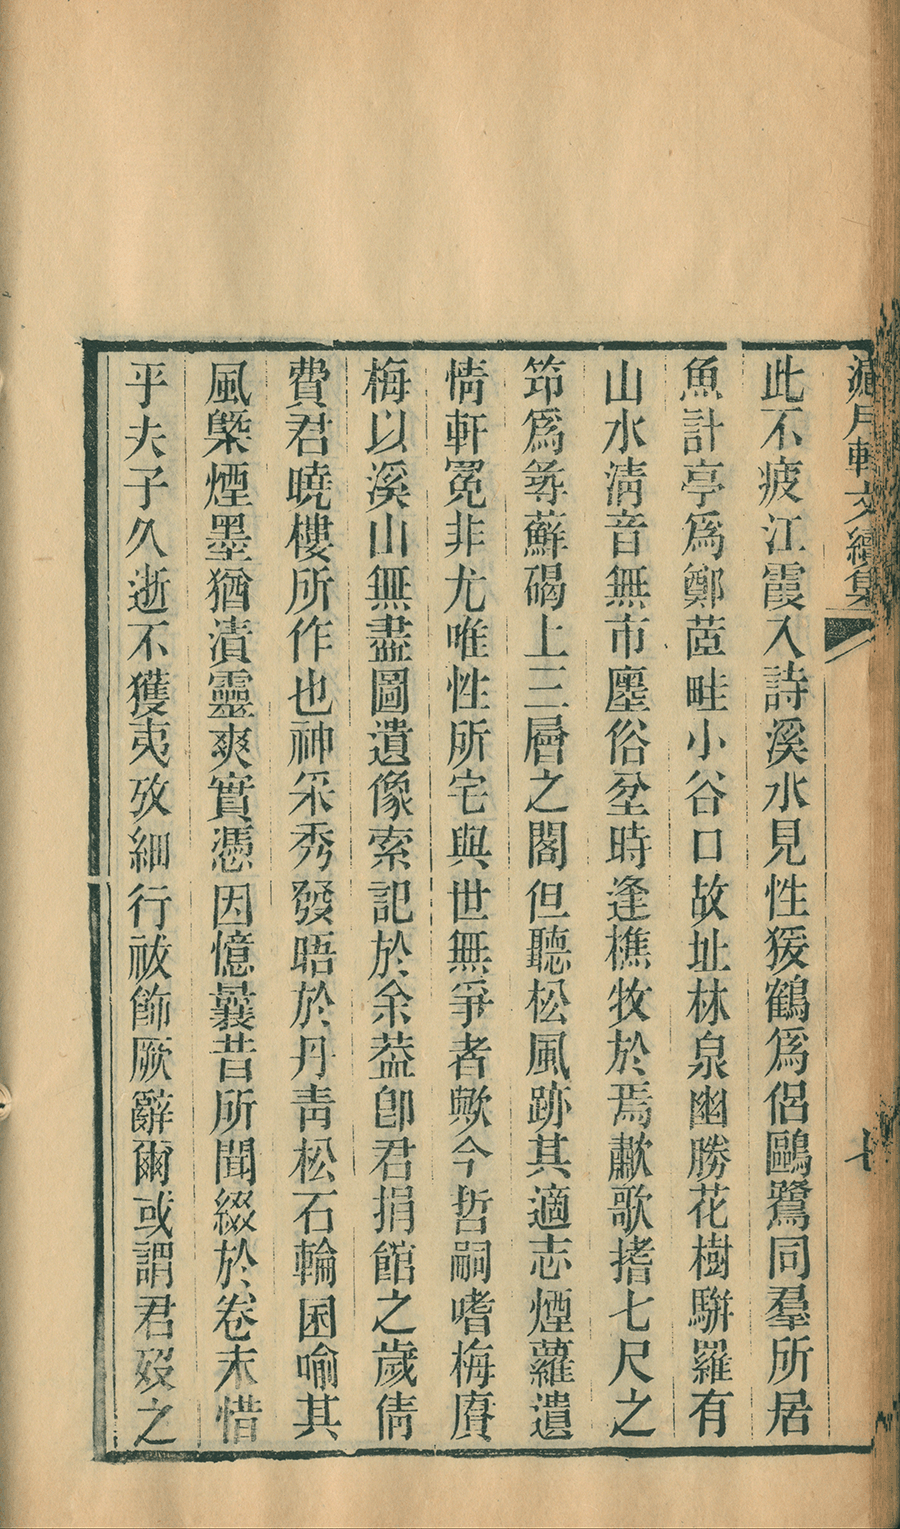 滬月軒文續集
此不疲江霞入詩溪水見性猨鶴爲侶鷗鷺同羣所居
魚計亭爲鄭莒畦小谷口故址林泉幽勝花樹駢羅有
山水淸音無市廛俗坌時逢樵牧於焉歗歌搘七尺之
笻爲尋蘇碣上三層之閣但聽松風跡其適志煙蘿遺
情軒冕非尤唯性所宅與世無爭者歟今哲嗣嗜梅賡
梅以溪山無盡圖遺像索記於余葢卽君捐館之歲倩
費君曉樓所作也神采秀發晤於丹靑松石輪囷喻其
風槩煙墨猶漬靈爽實憑因憶曩昔所聞綴於卷末惜
乎夫子久逝不獲夷攷細行祓飾厥辭爾或謂君歿之